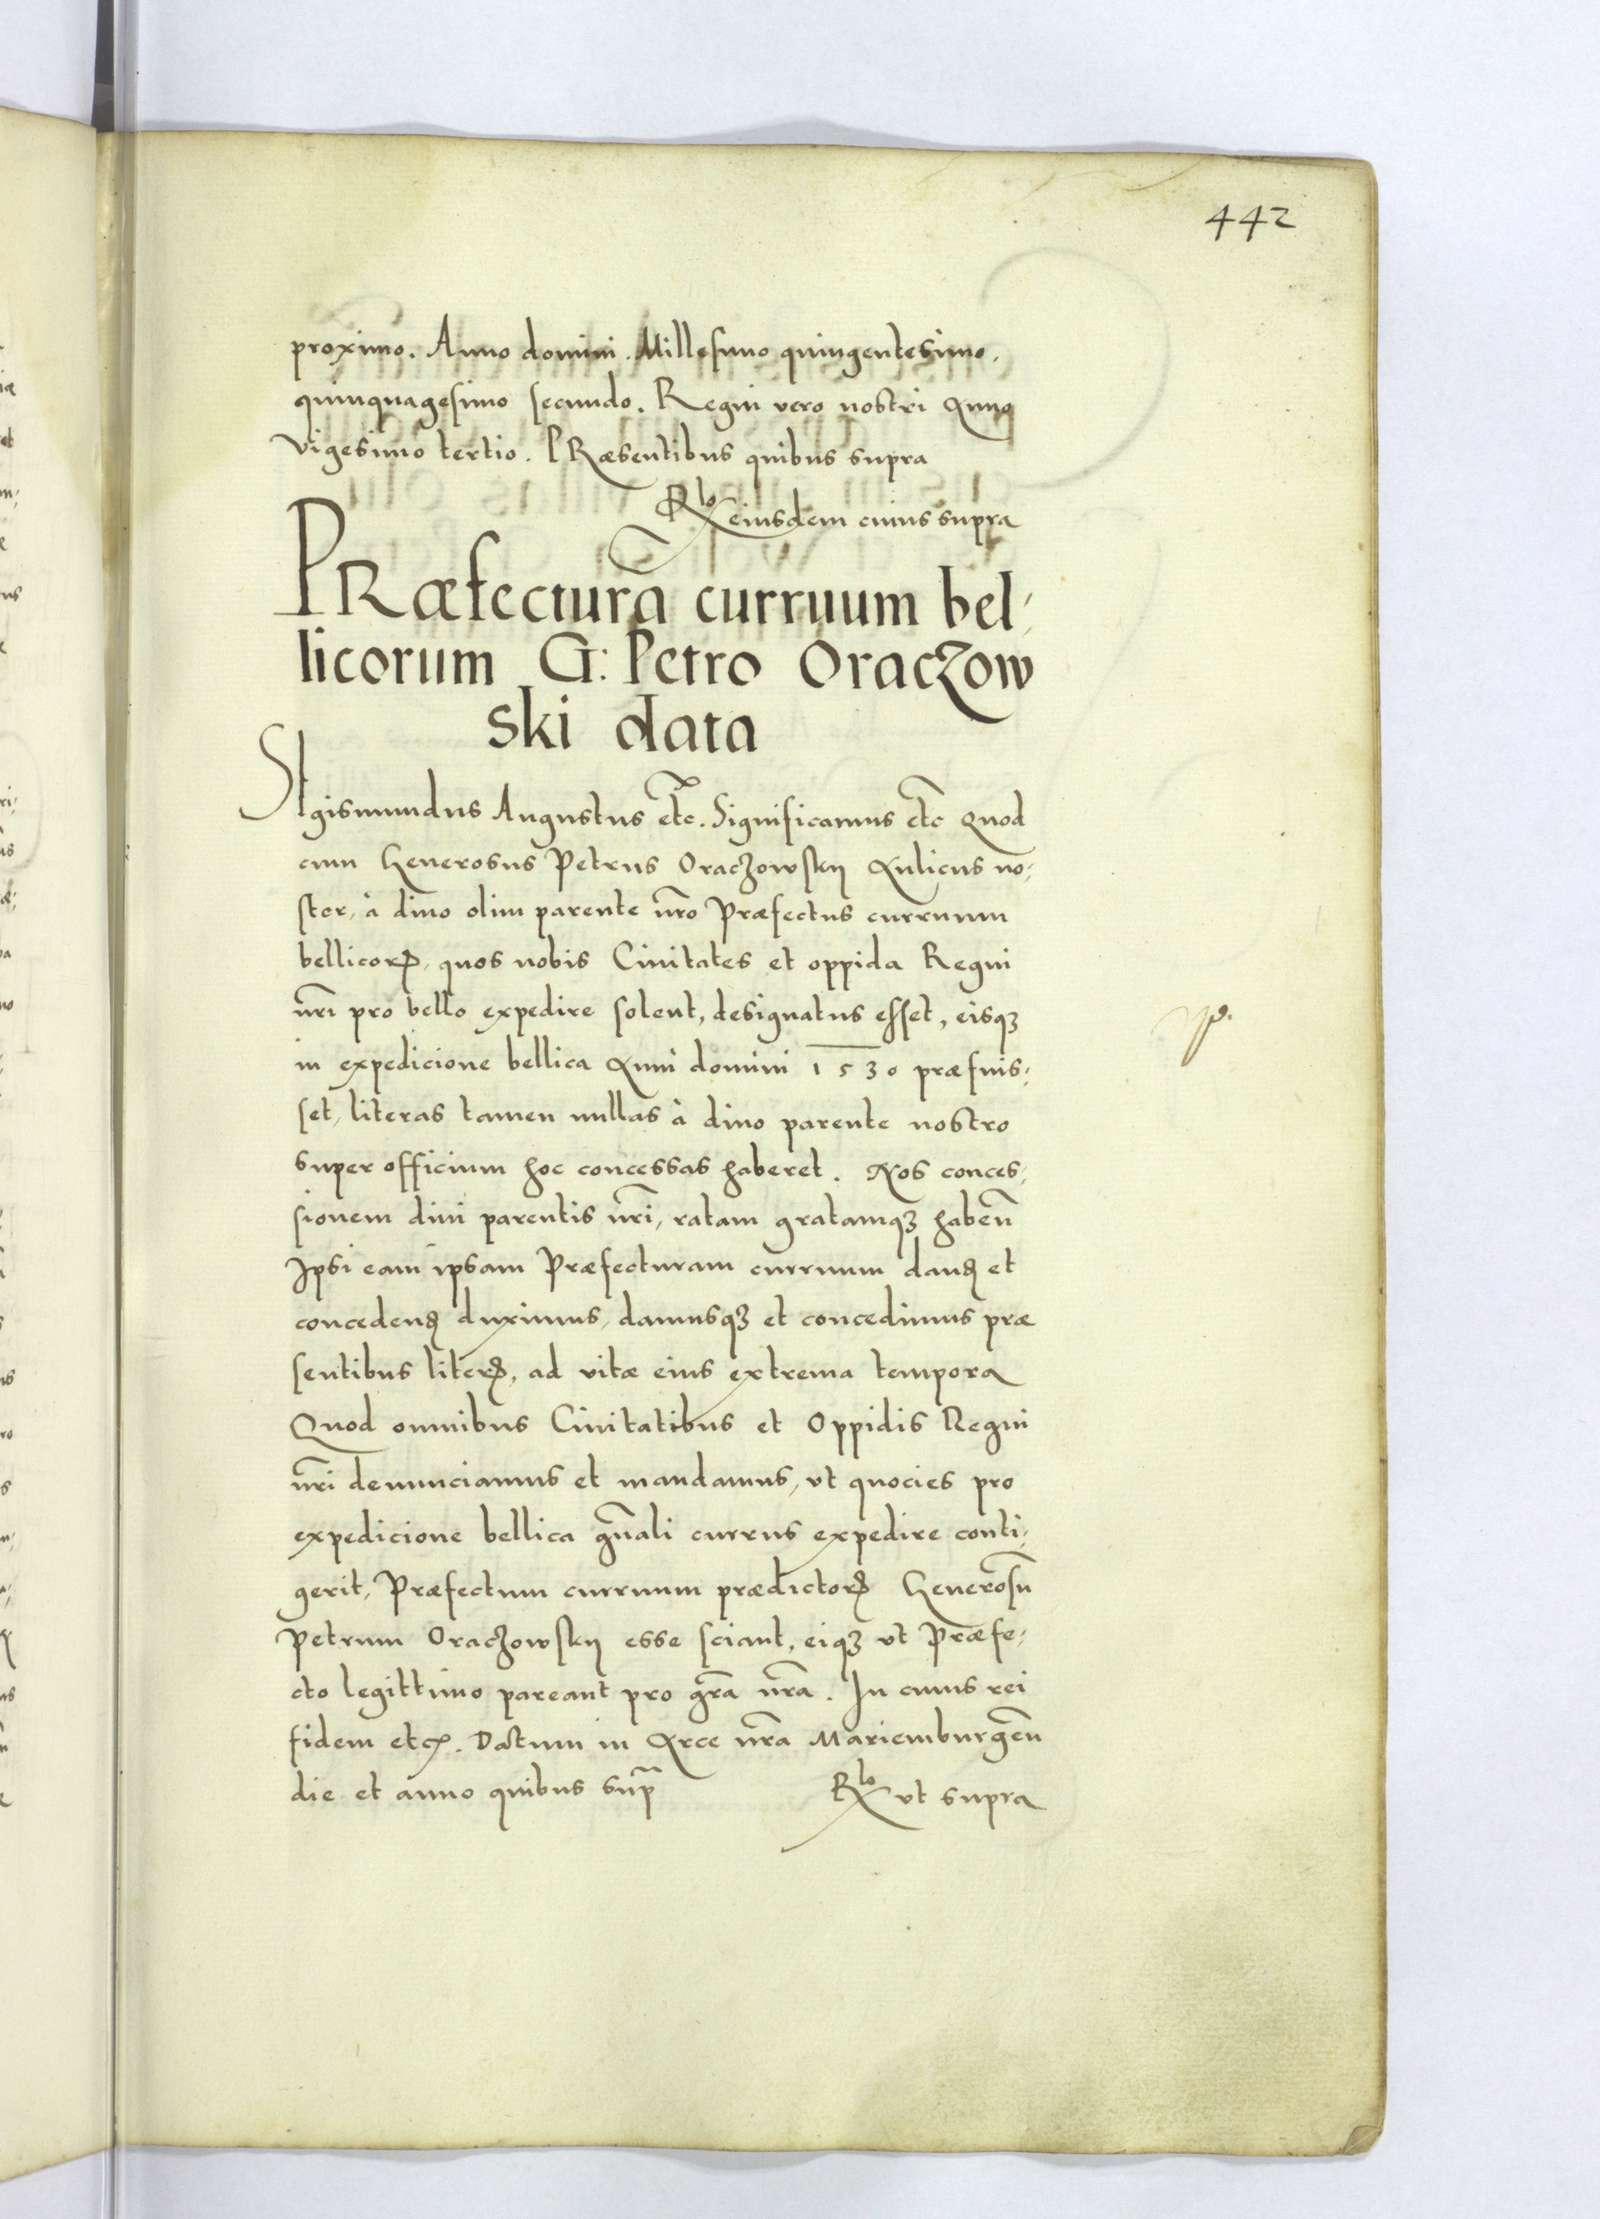 442
proximo. Anno domini. Millesimo quingentesimo.
quinquagesimo secundo. Regni vero nostri Anno
vigesimo tertio. PRæsentibus quibus supra
Rlo eiusdem cuius supra
PRæfectura curruum bel-
licorum G: Petro Oraczow
ski data
SIgismundus Augustus etc. Significamus etc Quod
cum Generosus Petrus Oraczowskij Aulicus no-
ster, à diuo olim parente nr̃o Præfectus curruum
bellicorꝝ, quos nobis Ciuitates et oppida Regni
nr̃i pro bello expedire solent, designatus esset, eisqꝫ
in expedicione bellica Anni domini 1530 præfuis-
set, literas tamen nullas à diuo parente nostro
super officium hoc concessas haberet. Nos conces-
sionem diui parentis nr̃i, ratam gratamqꝫ habeñ
Ipsi eam ipsam Præfecturam curruum danđ et
concedenđ duximus, damusqꝫ et concedimus præ
sentibus literꝭ, ad vitæ eius extrema tempora
Quod omnibus Ciuitatibus et Oppidis Regni
nr̃i denunciamus et mandamus, vt quocies pro
expedicione bellica gñali currus expedire conti-
gerit, Præfectum curruum prædictorꝝ Generosũ
Petrum Oraczowskij esse sciant, eiqꝫ vt Præfe-
cto legittimo pareant pro gr̃a nr̃a. In cuius rei
fidem etcꝭ. Datum in Arce nr̃a Mariemburgeñ
die et anno quibus sup̃
Rlo vt supra